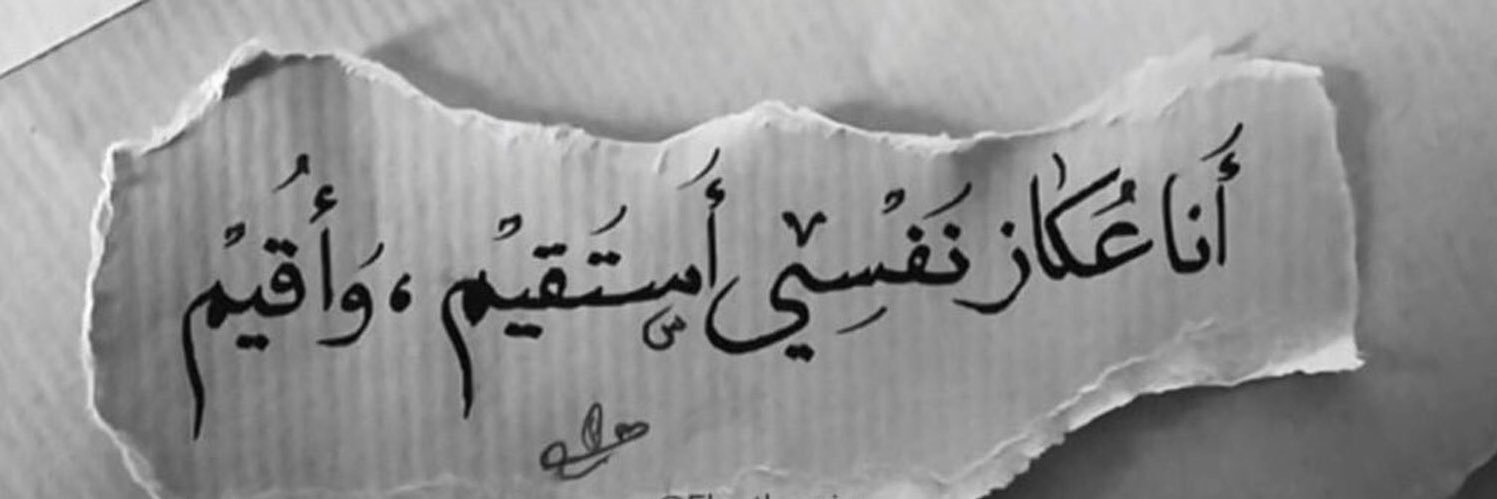 أَنا عُكّاز نَفْسِيْ أَستَقيْم ، وَأُقيْمُ